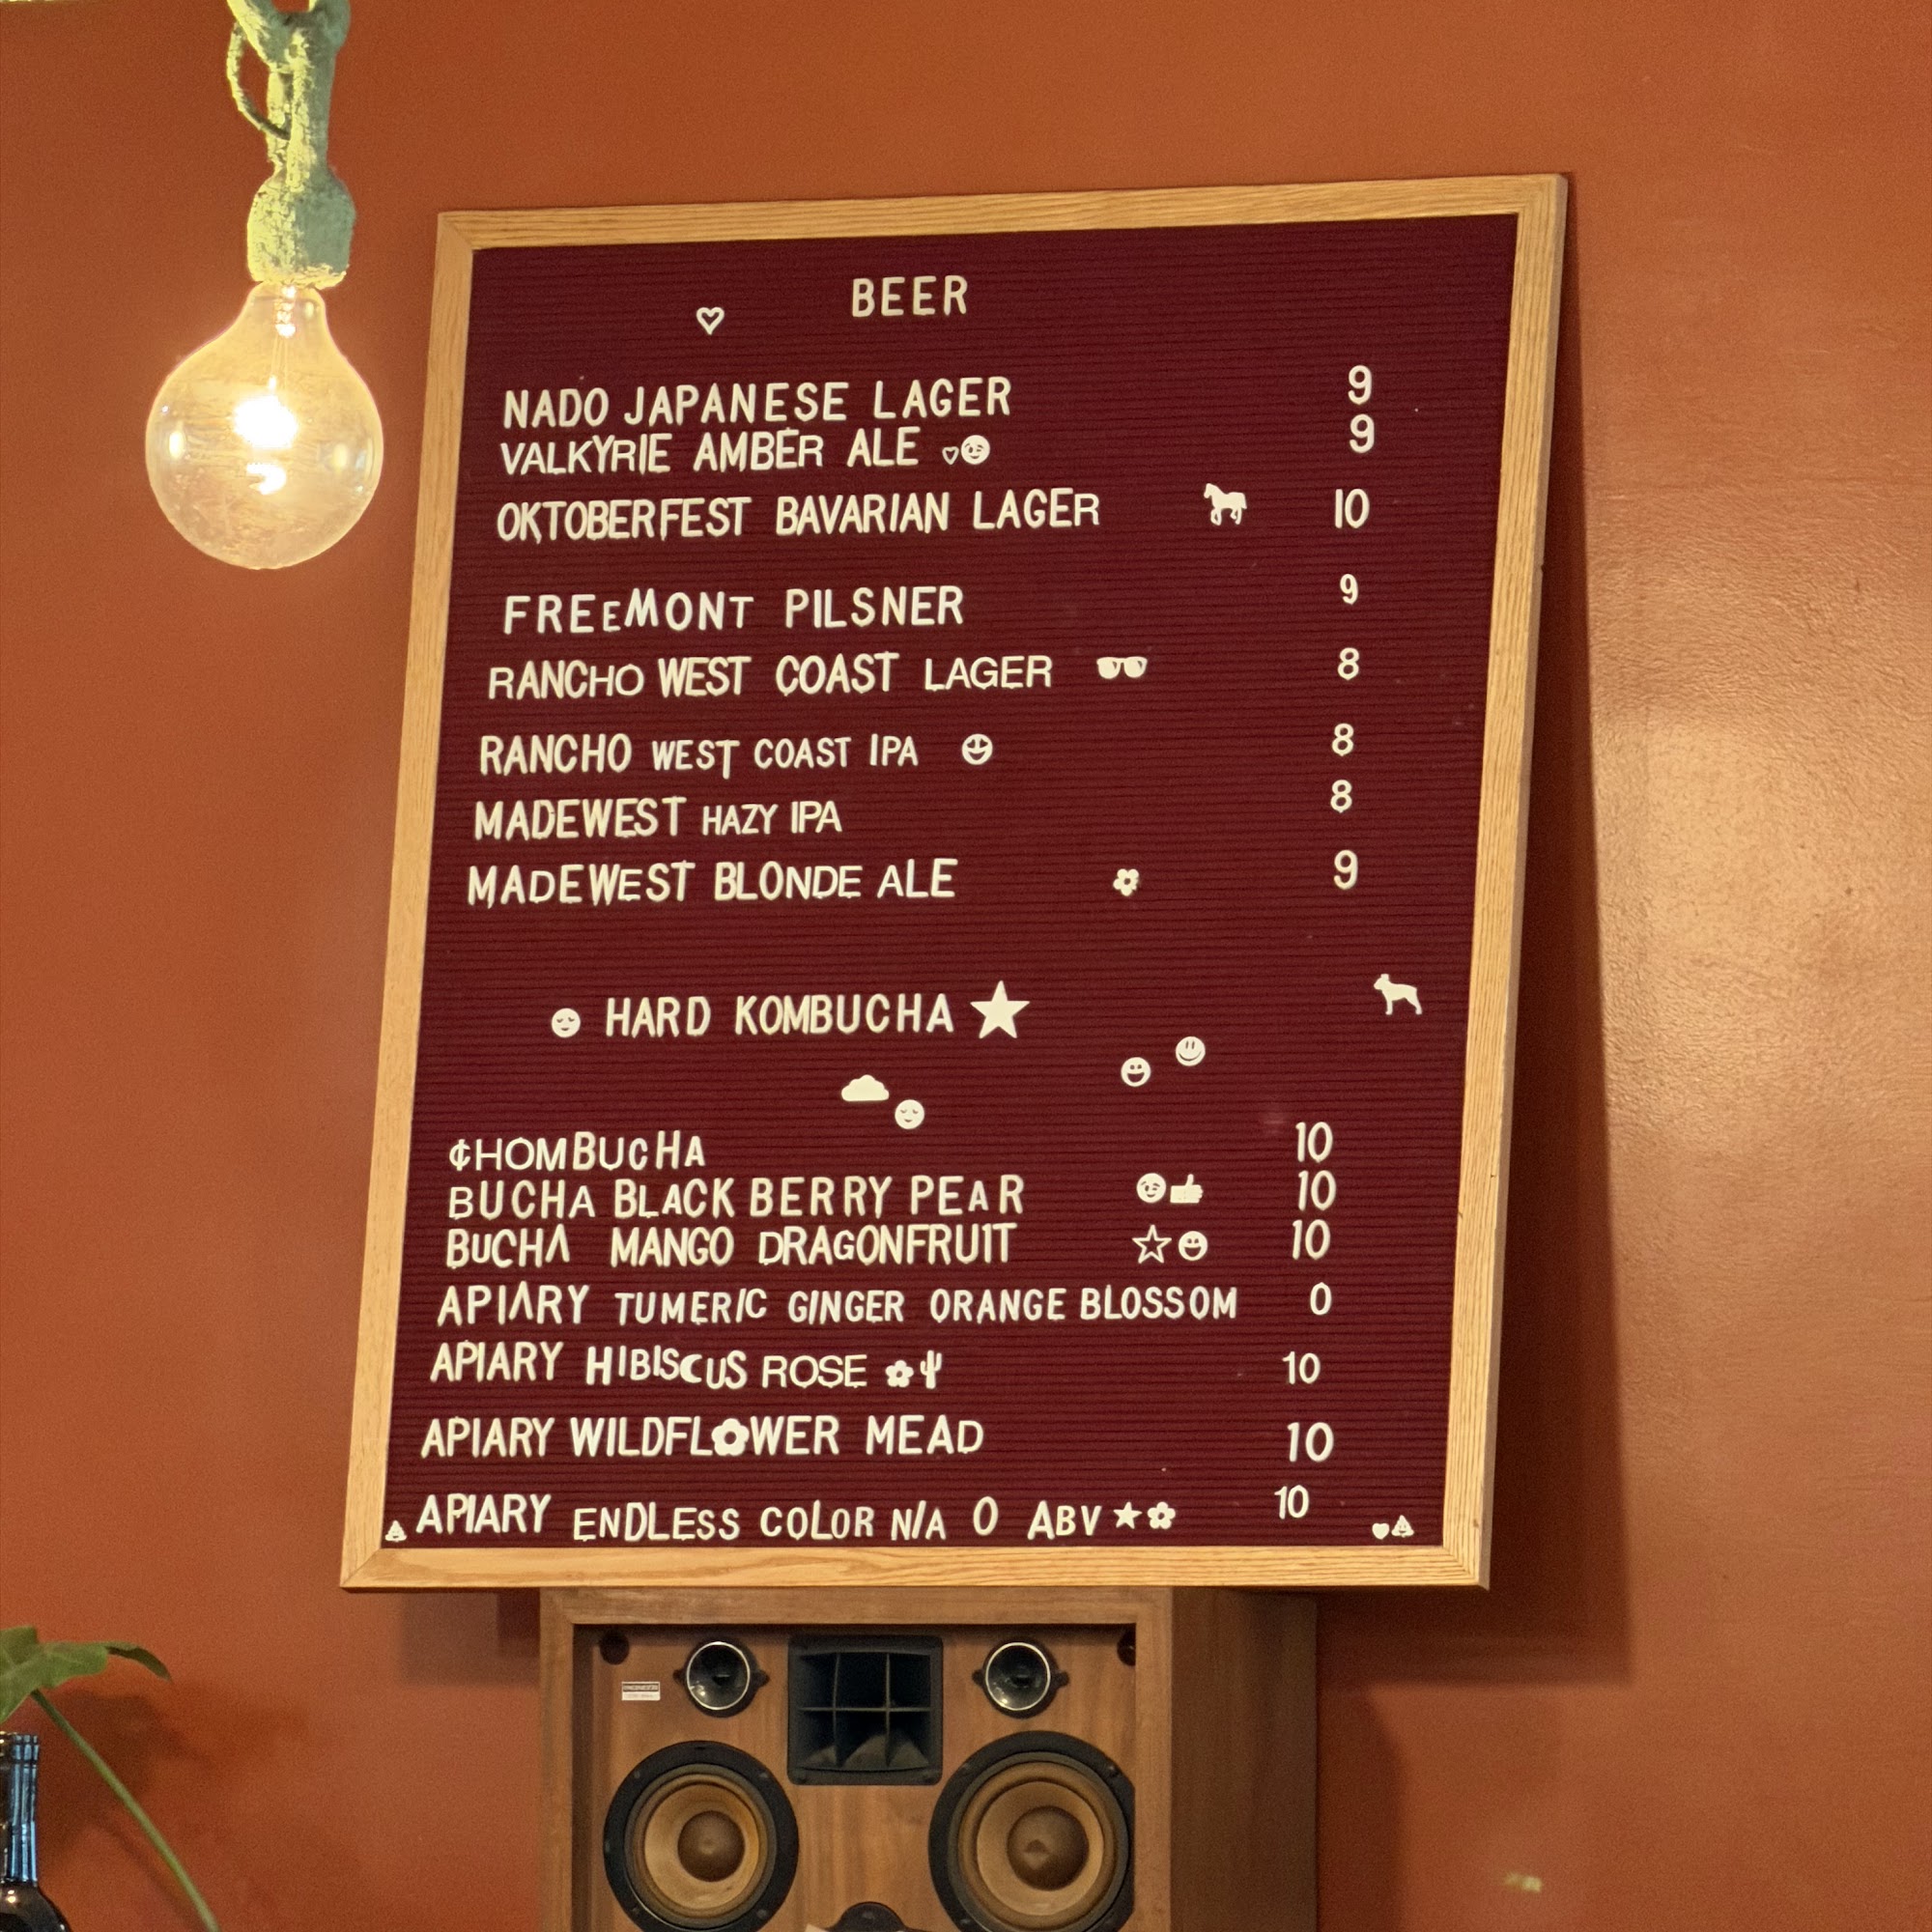 BEER
NADO JAPANESE LAGER 9
VALKYRIE AMBER ALE 9
OKTOBERFEST BAVARIAN LAGER 10
FREEMONT PILSNER 9
RANCHO WEST COAST LAGER 8
RANCHO WEST COAST IPA 8
MADEWEST HAZY IPA 8
MADEWEST BLONDE ALE 9
HARD KOMBUCHA
¢HOMBUCHA 10
BUCHA BLACKBERRY PEAR 10
BUCHA MANGO DRAGONFRUIT 10
APIARY TUMERIC GINGER ORANGE BLOSSOM 0
APIARY HIBISCUS ROSE 10
APIARY WILDFLOWER MEAD 10
APIARY ENDLESS COLOR N/A 0 ABV 10